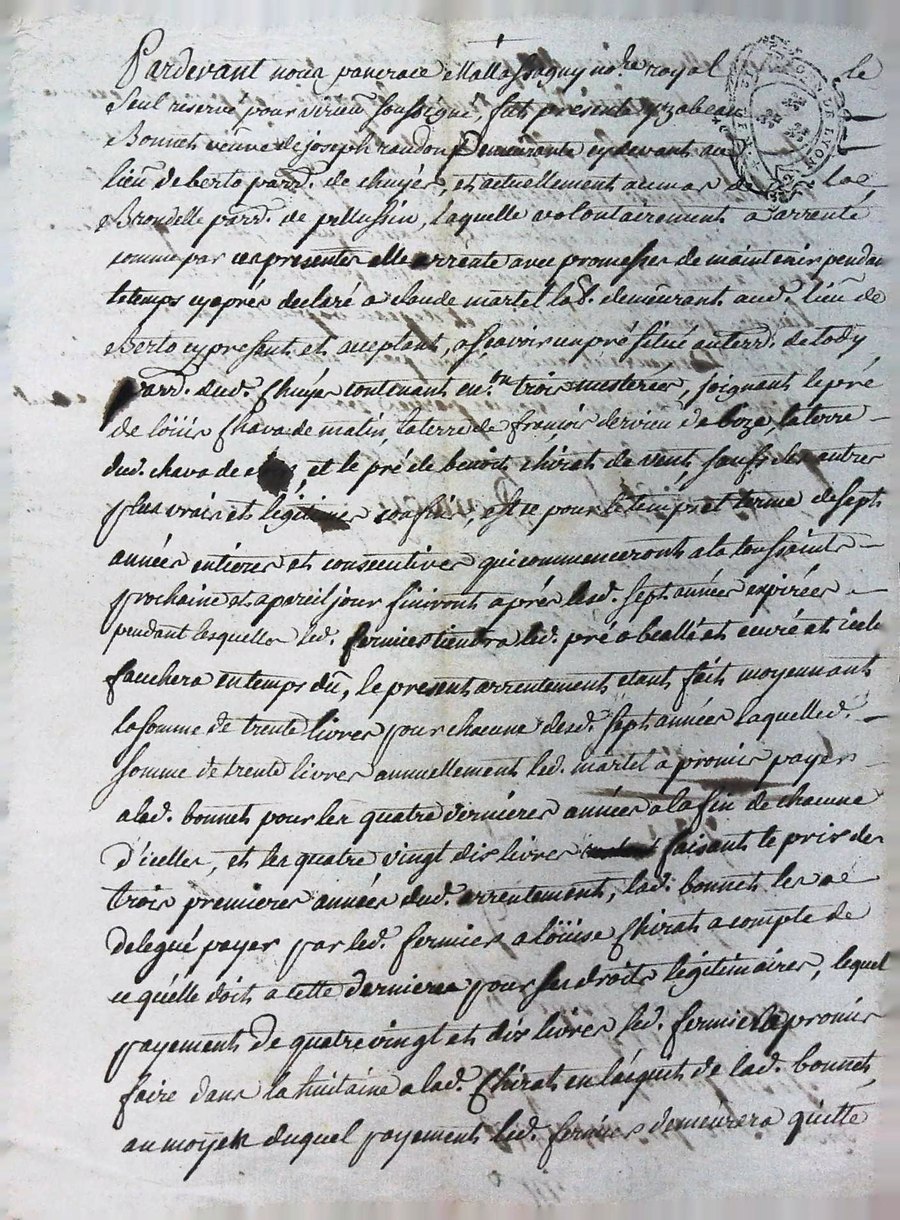 Pardevant nous pancrace Mallassagny no.re royal le
Seul reservé pour virieu soussigné, fut présente yzabeau
Bonnet veuve de joseph randon Demeurante cydevant au
lieu de berto parr. de chuyer, et actuellement au mas de la
Brondelle parr. de pellussin, laquelle volontairement a arrenté
comme par ces presentes elle arrente avec promesses de maintenir pendant
le temps cyaprés declaré a claude martel lab. demeurant aud. lieu de
Berto cy present et aceptant, asçavoir un pré situé au terr. de
parr. dud. Chuyer contenant en.on trois mesterées, joignant le pré
de loüis Chava de matin, la terre de françois dervieu de boze la terre
dud. chava de, et le pré de benoit chirat de vent, sauf des autres
plus vrais et legitimes confins, et ce pour le temps et terme de sept
années entiéres et consecutives qui commenceront a la toussaints
prochaine et a pareil jour finiront aprés lesd. sept années expirées
pendant lesquelles led. fermier tiendra led. pré et curé et icelui
fauchera en temps dû, le present arrentement etant fait moyennant
la somme de trente livres pour chacune desd. sept années laquelle d.
somme de trente livres annuellement led. martel a promis payer
a lad. bonnet pour les quatre dernieres années a la fin de chacune
d'icelles, et les quatre vingt dix livres faisant le prix des
trois premieres années dud. arrentement, lad. bonnet les a
delegué payer par led. fermier a loüise Chirat a compte de
ce quelle doit a cette derniere pour ses droits légitimaires, lequel
payement de quatre vingt et dix livres led. fermier a promis
faire dans la huitaine a lad. Chirat en l'acquit de lad. bonnet,
au moyen duquel payement led. fermier demeurera quitte